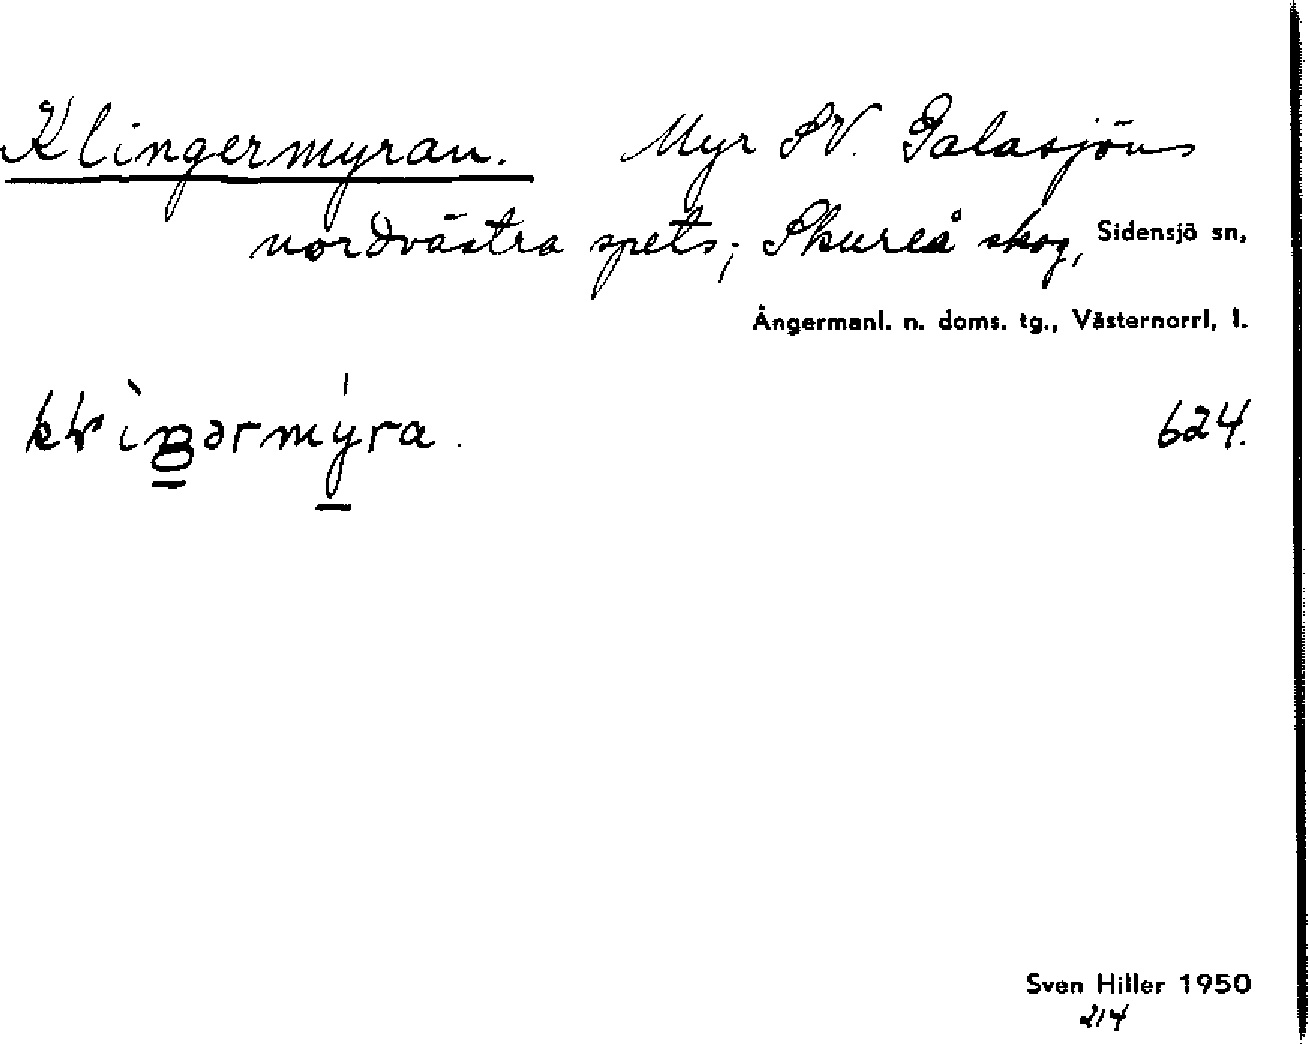 Klingermyran. Myr SV. Galasjöns
nordvästra spets; Skureå skog, Sidensjö sn,
Ångermanl. n. doms. tg., Västernorrl. l.
624.
Sven Hiller 1950
214